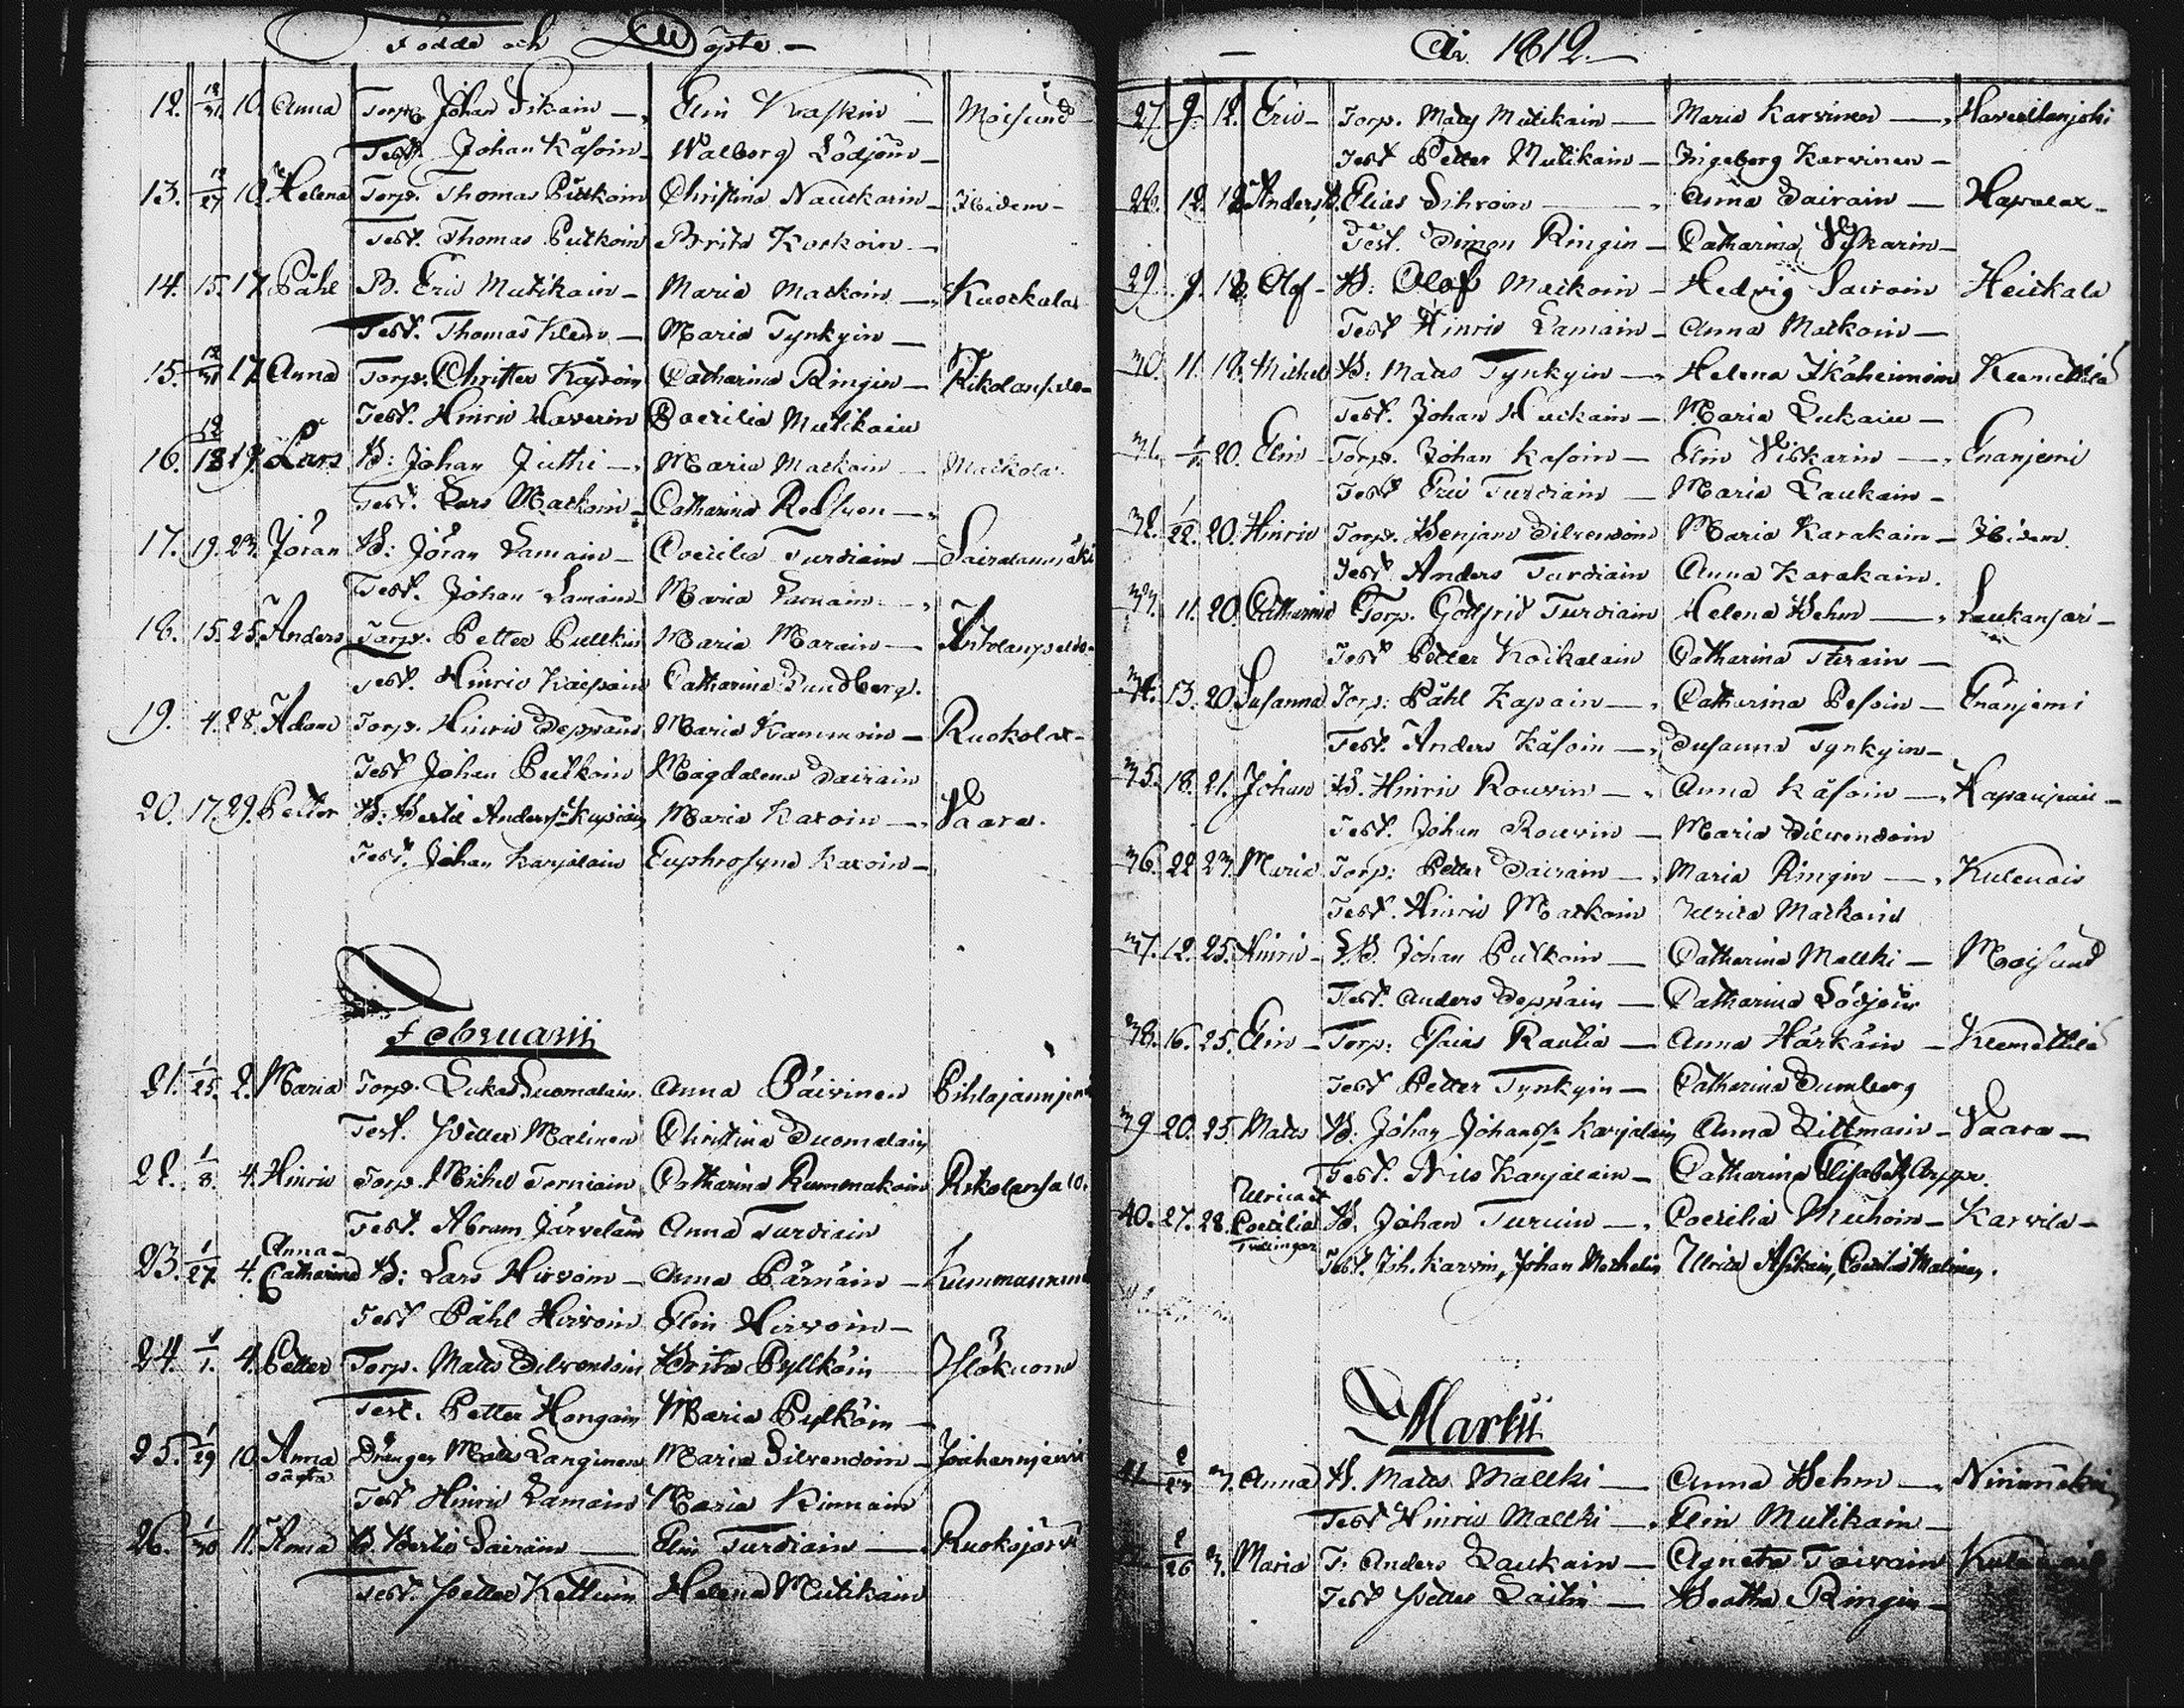 Födde och Döpte
12. 12/31 10. Anna Torp. Johan Sikain Elin Kraskin Moisund
Test. Johan Käsoin Walborg Lödjöin
13. 12/27 10. Helena Torp. Thomas Putkoin Christina Nauckarin Ibidem
Test. Thomas Putkoin Brita Kockoin
14. 15. 17. Påhl B. Eric Mutikain Maria Matkoin Kuockala
Test. Thomas Klem Maria Tynkyin
15. 12/31 17. Anna Torp. Christer Käsoin Catharina Ringin
Test. Hinric Haverin Coecilia Mutikain
16. 12/18 19. Lars B: Johan Juthi Maria Matkoin Matkola
Test. Lars Matkoin Catharina
17. 19. 23. Jöran B: Jöran Lamain Coecilia Turdiain
Test. Johan Lamain Maria Lamain
18. 15. 25. Anders Torp. Petter Pulkin Maria Marain
Test. Hinric Kaipain Catharina Sundberg.
19. 4. 28. Adam Torp. Hinric Seppäin Maria Kammoin Ruokolax
Test Johan Putkoin Magdalena Sairain
20. 17. 29. Petter B: Bertil Anderss: Kupiain Maria Karoin Vaara.
Test. Johan Karjalain Euphrosyna Karoin
Februarii
21. 1/25. 2. Maria Torp. Lukas Suomalain Anna Päivinen Pihlajaniemi
Test. Petter Malinen Christina Suomalain
22. 1/8. 4. Hinric Torp. Michel Terniain Catharina Rummakoin Rikolansalo.
Test. Abram Järveläin Anna Turdiain
23. 1/27 4. Anna Catharina B: Lars Hirvoin Anna Pärnäin
Test Påhl Hirvoin Elin Hirvoin
24. 1/1. 4. Petter Torp. Matts Silvendoin Brita Pyllköin
Test. Petter Hongain Maria Pylköin
25. 1/29 10. Anna oäckta Drängen Matts Langinen Maria Silvendoin
Test Hinric Lamain Maria Kinnain
26. 1/30 11. Anna B. Bertil Sairain Elin Turdiain Ruoksjärvi
Test. Petter Kettuin Helena Mutikain
År 1812.
27. 9. 12. Eric Torp. Mats Mutikain Maria Karvinen
Test Petter Mutikain Ingeborg Karvinen
28. 12. 12. Anders Elias Sihvoin Anna Sairain
Test. Simon Ringin Catharina Viskarin
29. 9. 18. Olof B: Olof Matkoin Hedvig Sairoin
Test Hinric Lamain Anna Matkoin
30. 11. 18. Michel B: Matts Tynkyin Helena Ikäheimoin
Test. Johan Huckain Maria Lukain
31. 20. Elin Torp. Johan Käsoin Elin Viskarin Enanjemi
Test Eric Turdiain Maria Laukain
32. 1/22. 20. Hinric Torp. Benjam Silvendoin Maria Karakain Ibidem.
Test Anders Turdiain Anna Karakain.
33. 11. 20. Catharina Torp. Gottfrid Turdiain Helena Behm Laukansari
Test Petter Kockalain Catharina
34. 13. 20. Susanna Torp: Påhl Kapain Catharina Pesoin Enanjemi
Test. Anders Käsoin Susanna Tynkyin
35. 18. 21. Johan B. Hinric Rouvin Anna Käsoin
Test. Johan Rouvin Maria Silvendoin
36. 22 23. Maria Torp: Petter Sairain Maria Ringin
Test. Hinric Matkoin Ulrica Matkoin
37. 12. 25. Hinric Johan Putkoin Catharina Mallki Moisund
Test. Anders Seppäin Catharina Lödjöin
38. 16. 25. Elin Torp: Esaias Rautia Anna Härkäin
Test Petter Tynkyin Catharina Sumberg
39 20. 25. Matts B. Johan Johanss: Karjalain Anna Littmain Vaara
Test. Nils Karjalain Catharina Elisabeth Arppe.
40. 27. 28. Ulrica et Coecilia Tvillingar B. Johan Turuin Coecilia Muhoin Karvila
Test. Joh. Karvin, Johan Michelin Ulrica Asikain, Coecilia Malinen.
Martii
41. 2/23 3. Anna B. Matts Mallki Anna Behm
Test Hinric Mallki Elin Mutikain
2/26 3. Maria T: Anders Laukain Agneta Toivain
Test Petter Laitin Beatha Ringin